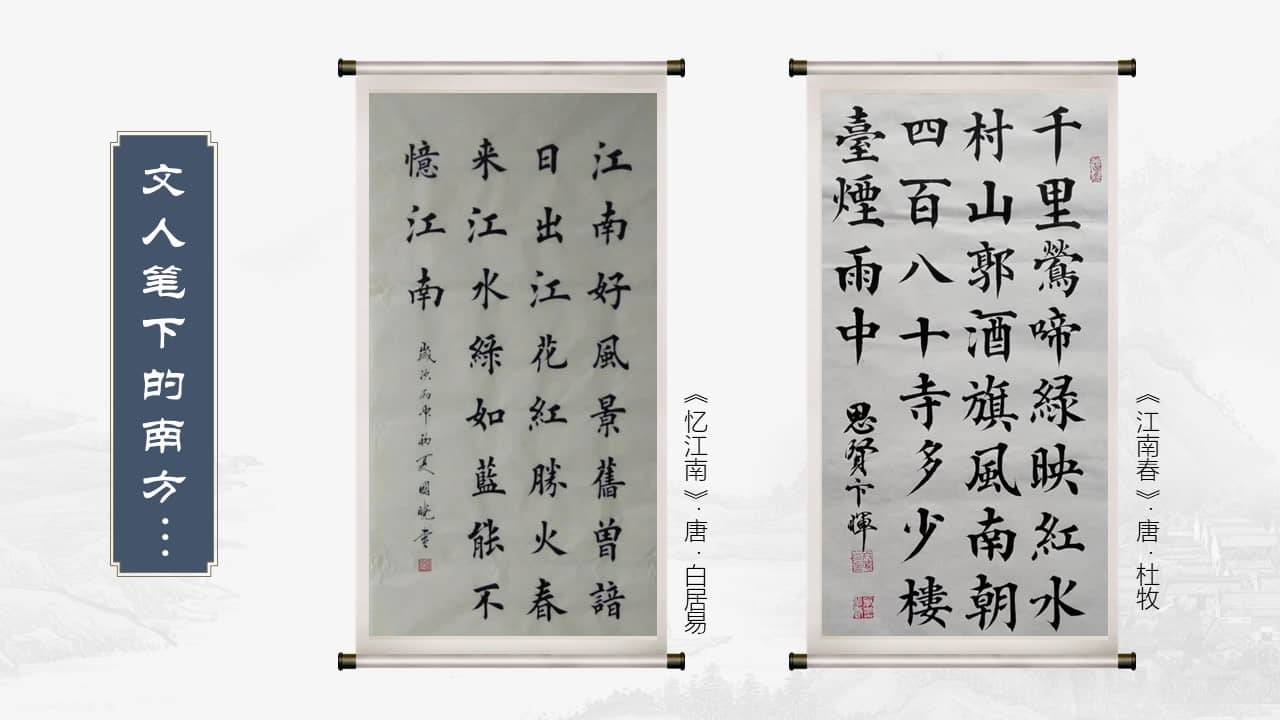 文人笔下的南方…
江南好風景舊曾諳
日出江花紅勝火春
来江水綠如藍能不
憶江南
《忆江南》·唐·白居易
千里鶯啼緑映紅水
村山郭酒旗風南朝
四百八十寺多少樓
臺煙雨中
思賢卞暉
《江南春》·唐·杜牧